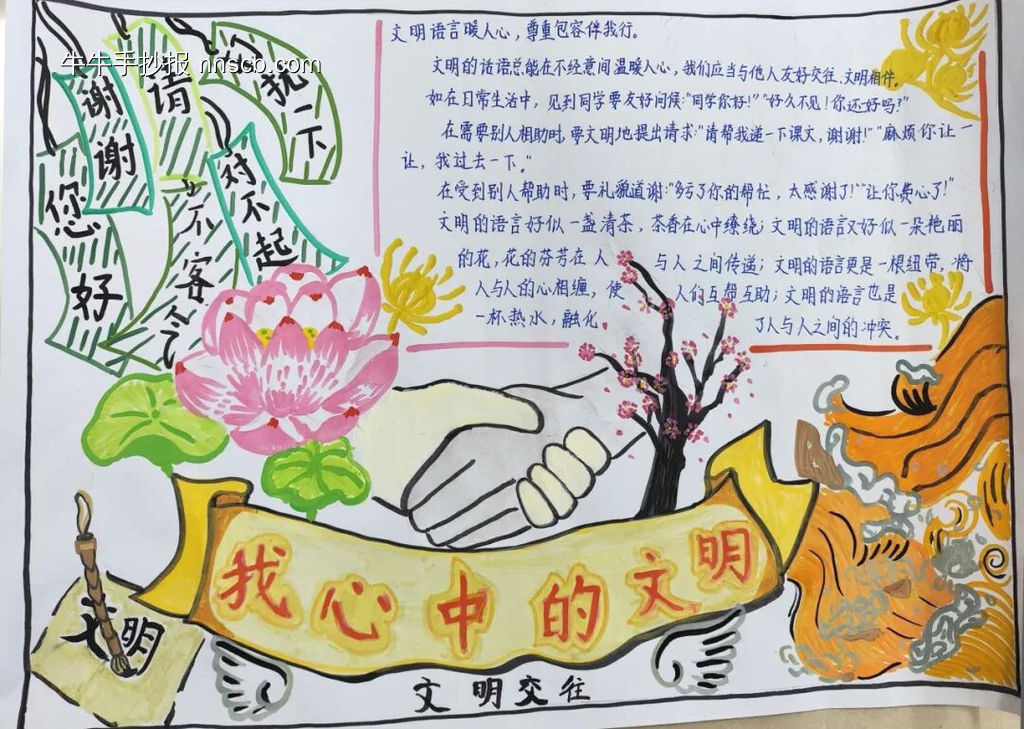 牛牛手抄报 nnscb.com
谢谢
请
扰一下
您好
不客气
对不起
文明语言暖人心，尊重包容伴我行。
文明的话语总能在不经意间温暖人心，我们应当与他人友好交往，文明相伴。
如在日常生活中，见到同学要友好问候:"同学你好!""好久不见!你还好吗?"
在需要别人相助时，要文明地提出请求:"请帮我递一下课文，谢谢!""麻烦你让一
让，我过去一下。"
在受到别人帮助时，要礼貌道谢:"多亏了你的帮忙，太感谢了!""让你费心了!"
文明的语言好似一盏清茶，茶香在心中缭绕；文明的语言又好似一朵艳丽
的花，花的芬芳在人与人之间传递；文明的语言更是一根纽带，将
人与人的心相缠，使人们互帮互助；文明的语言也是
一杯热水，融化了人与人之间的冲突。
我心中的文明
文明
文明交往